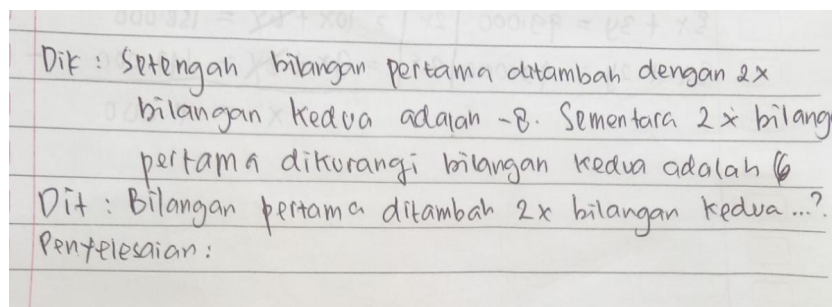 Dik : Setengah bilangan pertama ditambah dengan 2x
bilangan kedua adalah -8. Sementara 2x bilang
pertama dikurangi bilangan kedua adalah 6
Dit : Bilangan pertama ditambah 2x bilangan kedua ...?
Penyelesaian :